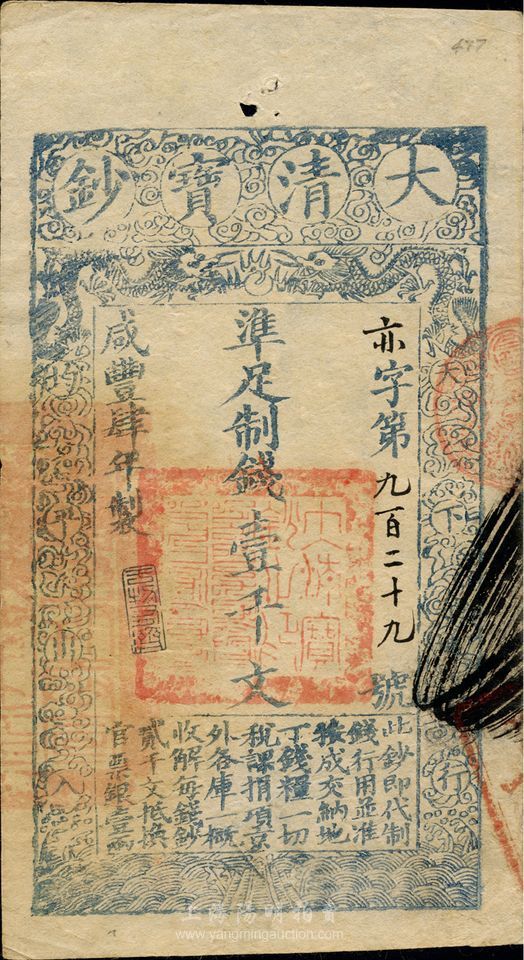 477
大清寶鈔
亦字第九百二十九號
準足制錢壹千文
咸豐肆年製
天下
行
此鈔即代制
錢行用並准
按成交納地
丁錢糧一切
稅課捐項京
外各庫一概
收解每錢鈔
貳千文抵換
官票銀壹兩
上海陽明拍賣
www.yangmingauction.com